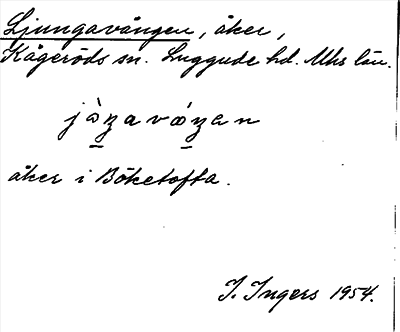 Ljungavången, åker,
Kågeröds sn. Luggude hd. Mhs län.
åker i Böketofta.
I. Ingers 1954.